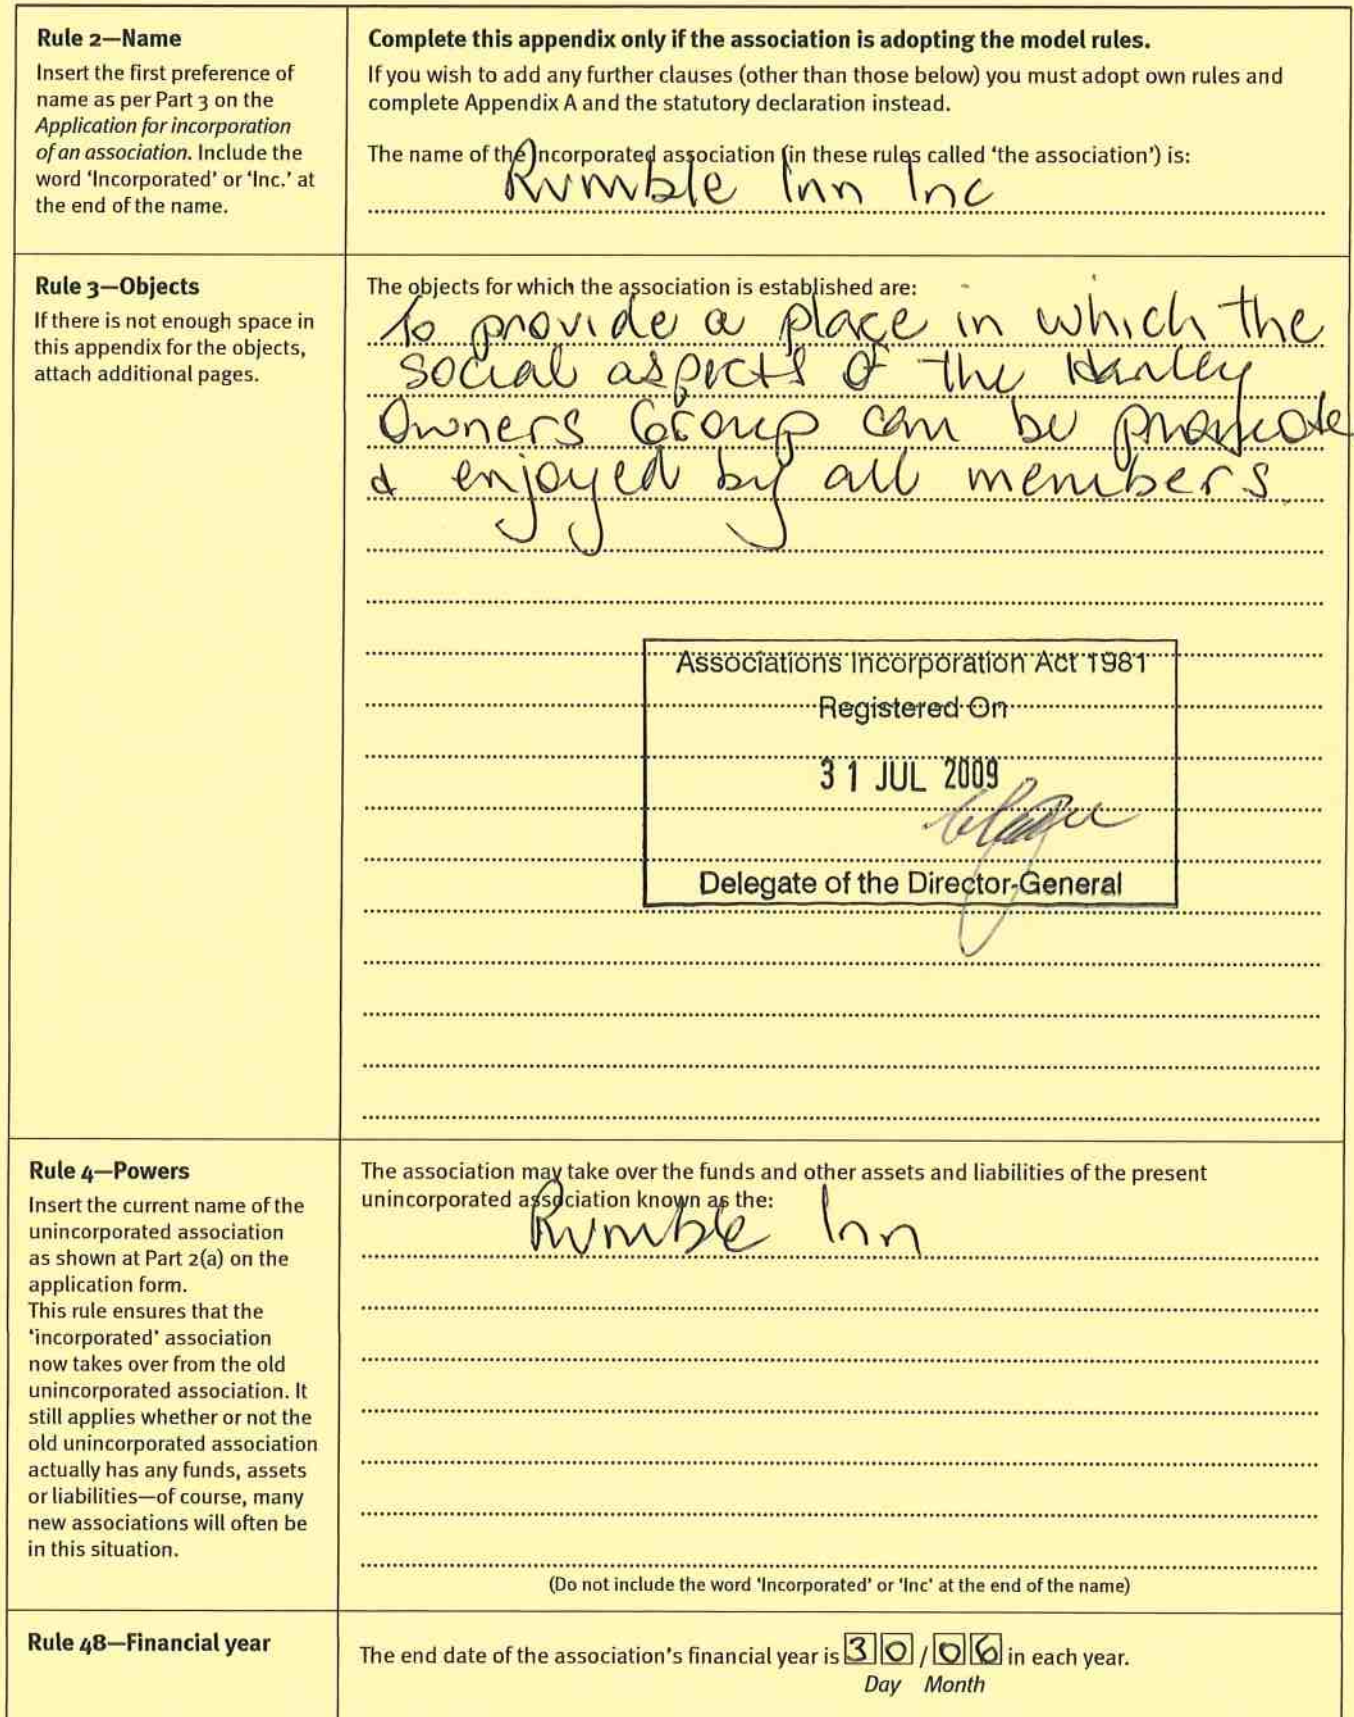 Rule 2—Name
Insert the first preference of
name as per Part 3 on the
Application for incorporation
of an association. Include the
word 'Incorporated' or 'Inc.' at
the end of the name.
Complete this appendix only if the association is adopting the model rules.
If you wish to add any further clauses (other than those below) you must adopt own rules and
complete Appendix A and the statutory declaration instead.
The name of the incorporated association (in these rules called 'the association') is:
Rumble Inn Inc
Rule 3—Objects
If there is not enough space in
this appendix for the objects,
attach additional pages.
The objects for which the association is established are:
To provide a place in which the
social aspects of the Harley
Owners Group can be promote
& enjoyed by all members.
Associations Incorporation Act 1981
Registered On
31 JUL 2009
Delegate of the Director-General
Rule 4—Powers
Insert the current name of the
unincorporated association
as shown at Part 2(a) on the
application form.
This rule ensures that the
'incorporated' association
now takes over from the old
unincorporated association. It
still applies whether or not the
old unincorporated association
actually has any funds, assets
or liabilities—of course, many
new associations will often be
in this situation.
The association may take over the funds and other assets and liabilities of the present
unincorporated association known as the:
Rumble Inn
(Do not include the word 'Incorporated' or 'Inc' at the end of the name)
Rule 48—Financial year
The end date of the association's financial year is 30/06 in each year.
Day Month